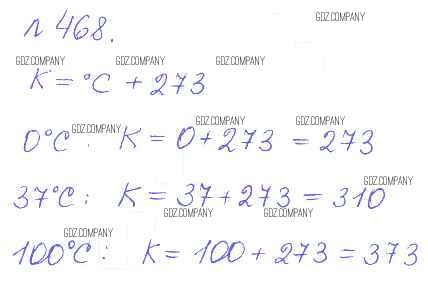 № 468.
GDZ.COMPANY
GDZ.COMPANY GDZ.COMPANY GDZ.COMPANY
K = °C + 273
GDZ.COMPANY GDZ.COMPANY GDZ.COMPANY
0°C : K = 0 + 273 = 273
GDZ.COMPANY
37°C : K = 37 + 273 = 310
GDZ.COMPANY GDZ.COMPANY
GDZ.COMPANY
100°C : K = 100 + 273 = 373